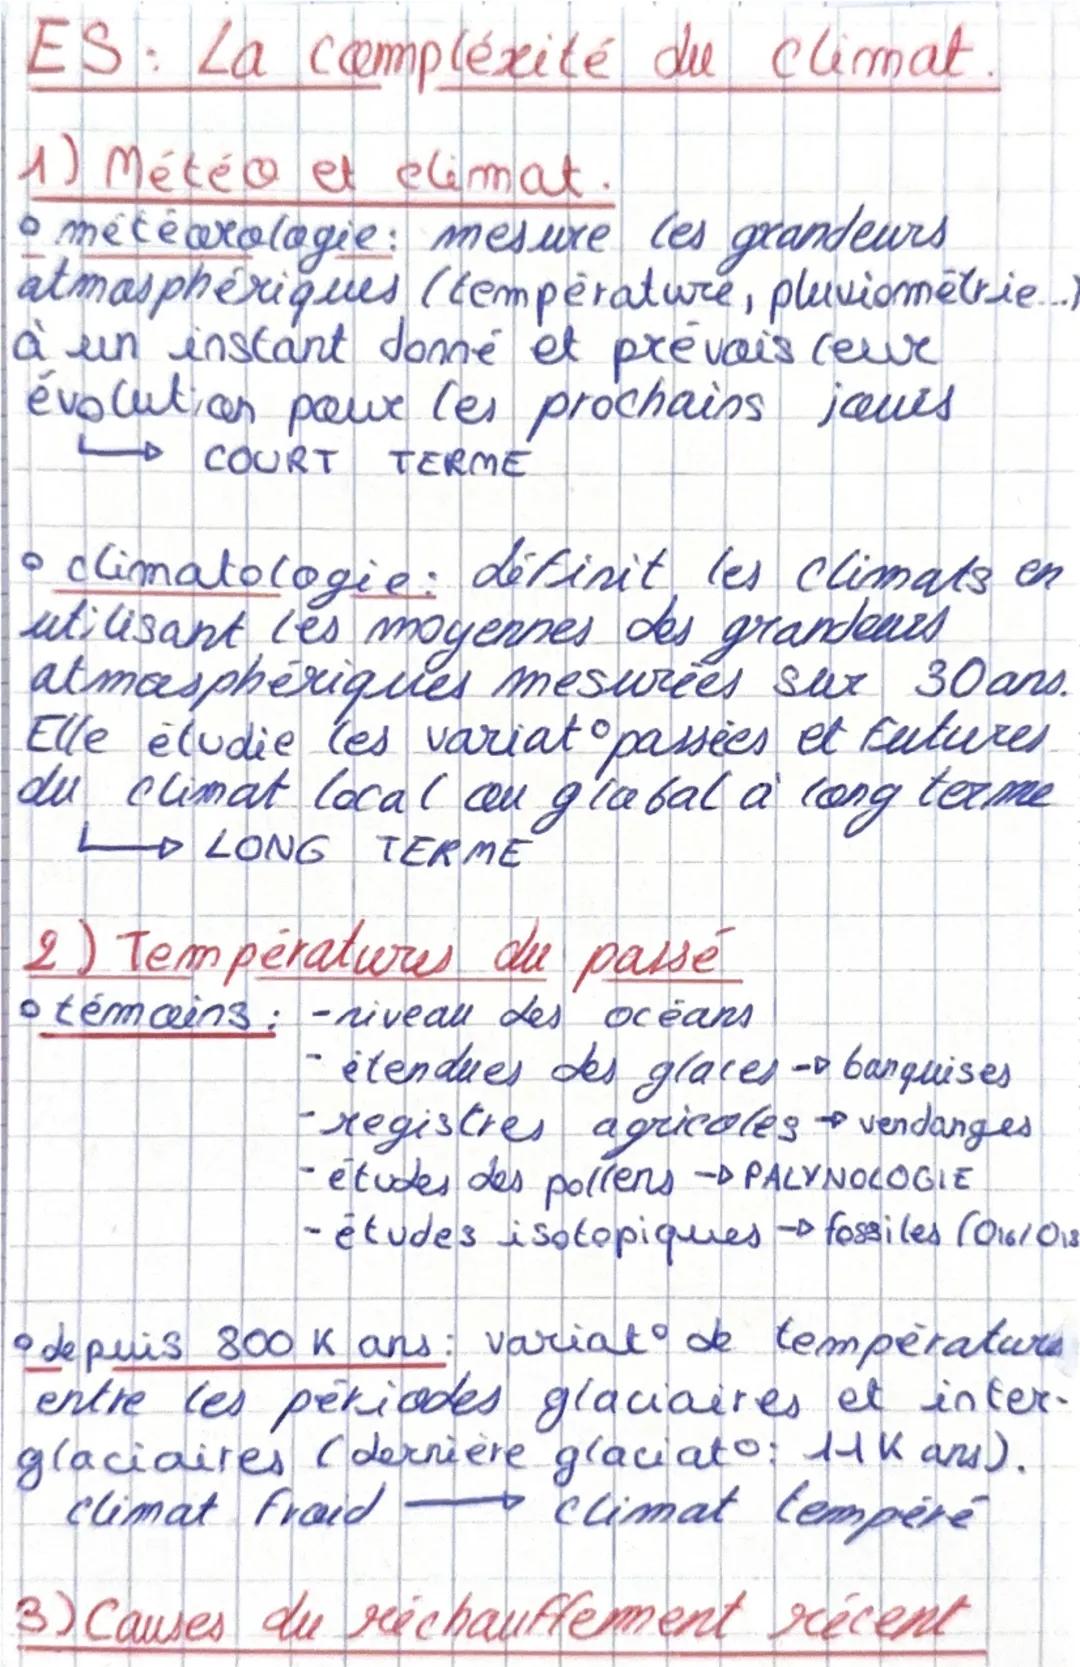 ES: La compléxité du climat.
1) Météo et climat.
° météorologie: mesure les grandeurs
atmosphériques (température, pluviométrie...)
à un instant donné et prévois leur
évolution pour les prochains jours
↳ COURT TERME
° climatologie: définit les climats en
utilisant les moyennes des grandeurs
atmosphériques mesurées sur 30 ans.
Elle étudie les variat° passées et futures
du climat local ou global à long terme
↳ LONG TERME
2) Températures du passé
° témoins: - niveau des océans
- étendues des glaces → banquises
- registres agricoles → vendanges
- études des pollens → PALYNOLOGIE
- études isotopiques → fossiles (O16/O18
° depuis 800 K ans: variat° de températures
entre les périodes glaciaires et inter-
glaciaires (dernière glaciat°: 11 K ans).
climat froid → climat tempéré
3) Causes du réchauffement récent